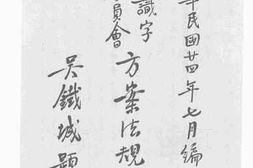 華民國廿四年七月編
識字
員會
方案法規
吳鐵城題